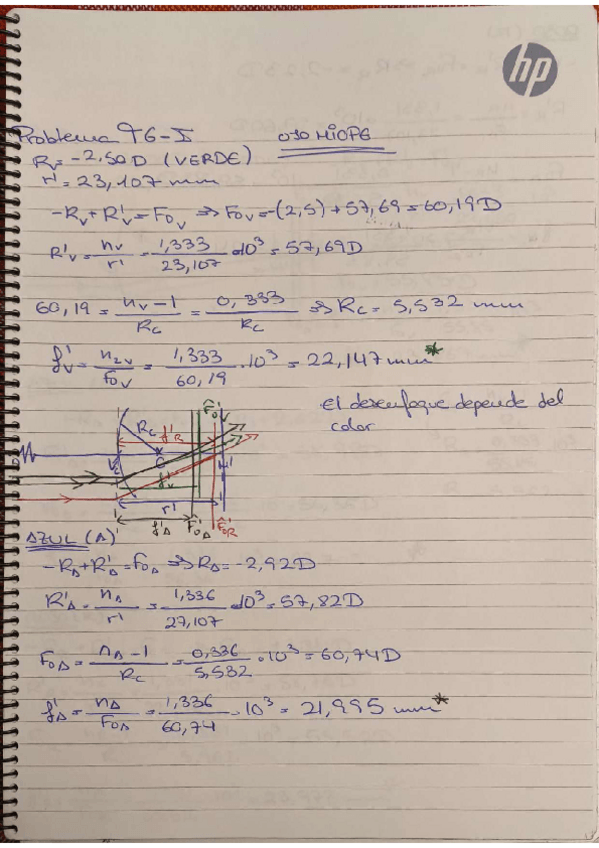 hp
Problema T6-I OJO MIOPE
Rv = -2,50 D (VERDE)
r' = 23,107 mm
-Rv + R'v = Fov ⇒ Fov = -(2,5) + 57,69 = 60,19 D
R'v = nv/r' = 1,333/23,107 · 10³ = 57,69 D
60,19 = nv-1/Rc = 0,333/Rc ⇒ Rc = 5,532 mm
f'v = n2v/Fov = 1,333/60,19 · 10³ = 22,147 mm*
El desenfoque depende del
color
F'ov
Rc f'R
C
f'v
r'
f'A F'oA F'oR
AZUL (A)
-RA + R'A = FoA ⇒ RA = -2,92 D
R'A = nA/r' = 1,336/27,107 · 10³ = 57,82 D
FoA = nA-1/Rc = 0,336/5,532 · 10³ = 60,74 D
f'A = nA/FoA = 1,336/60,74 · 10³ = 21,995 mm*